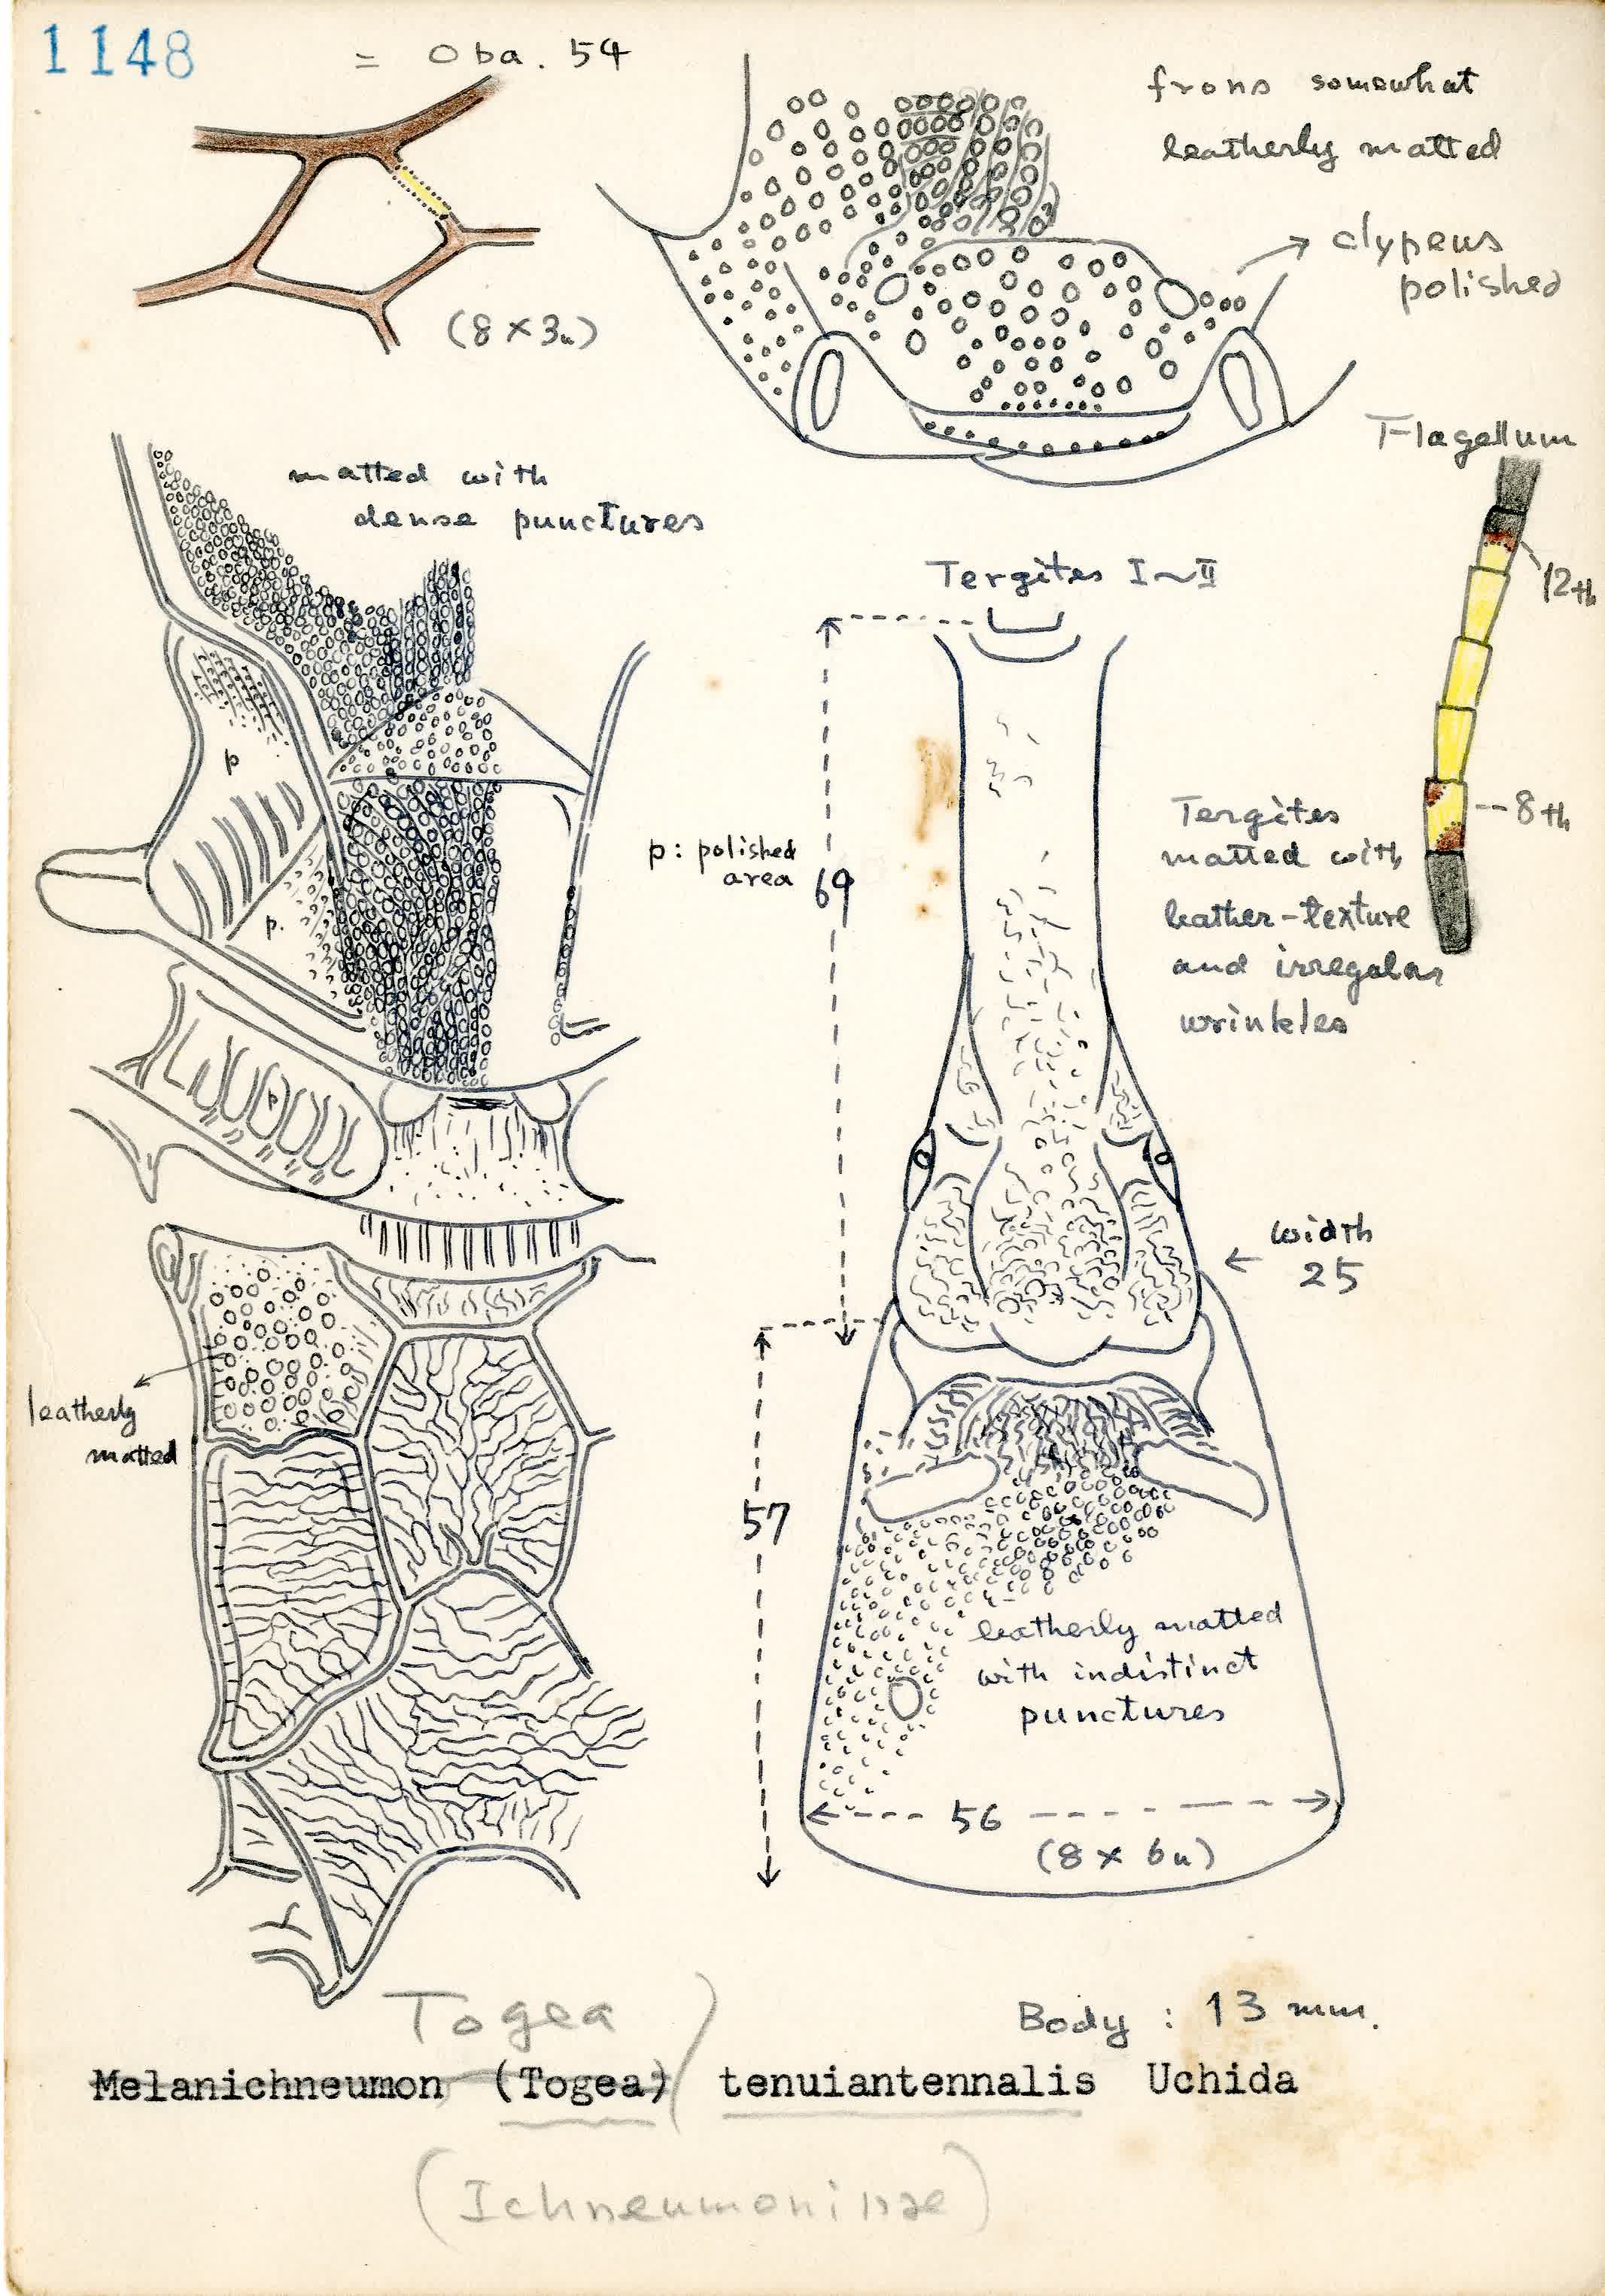 1148
= Oba. 54
frons somewhat
leatherly matted
clypeus
polished
(8 × 3u)
Flagellum
matted with
dense punctures
12th
Tergites I~II
p
8th
p: polished
area
69
Tergites
matted with
leather-texture
and irregular
wrinkles
p.
p
width
25
leatherly
matted
57
leatherly matted
with indistinct
punctures
56
(8 × 6u)
Togea
Body : 13 mm.
Melanichneumon (Togea) tenuiantennalis Uchida
(Ichneumoninae)